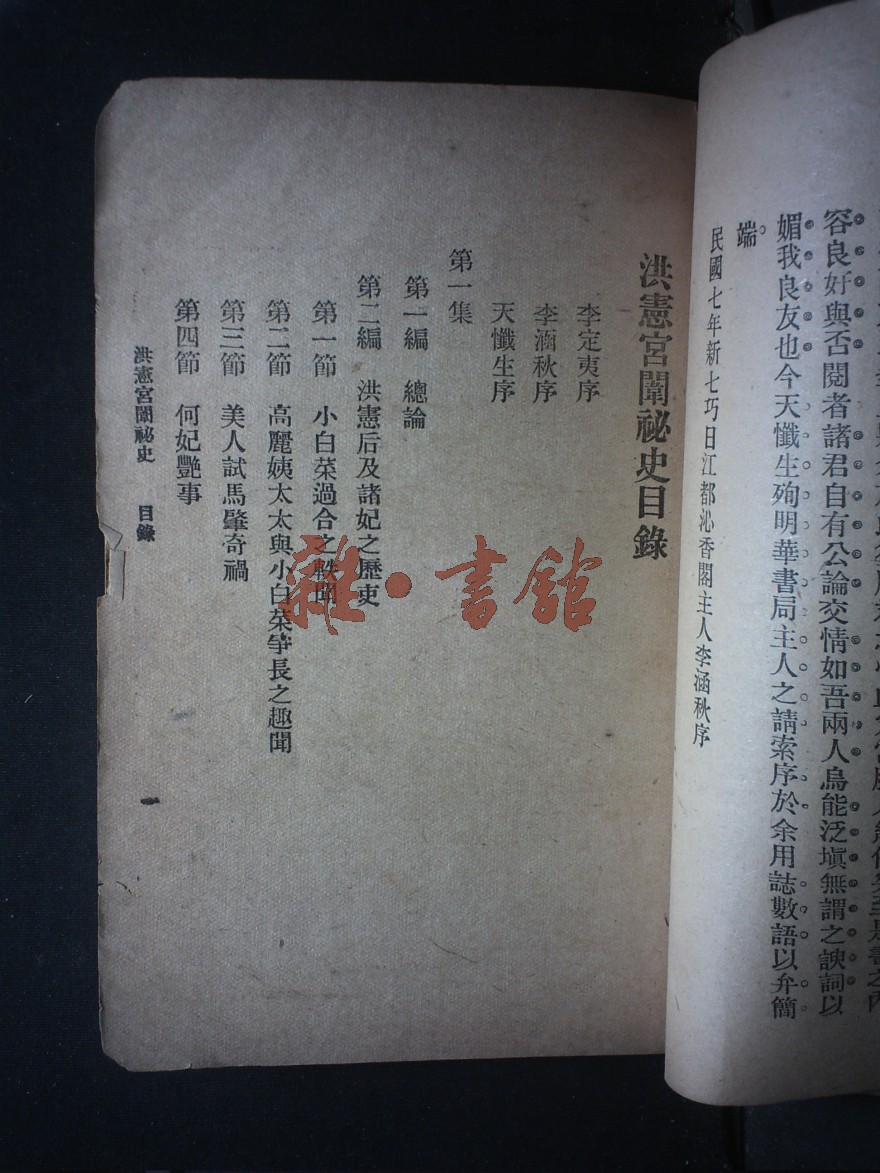 容良好與否閱者諸君自有公論交情如吾兩人烏能泛塡無謂之諛詞以
媚我良友也今天懺生殉明華書局主人之請索序於余用誌數語以弁簡
端。
民國七年新七巧日江都沁香閣主人李涵秋序
洪憲宮闈祕史目錄
李定夷序
李涵秋序
天懺生序
第一集
第一編 總論
第二編 洪憲后及諸妃之歷史
第一節 小白菜過合之軼聞
第二節 高麗姨太太與小白菜爭長之趣聞
第三節 美人試馬肇奇禍
第四節 何妃艷事
洪憲宮闈祕史 目錄
一
雜·書館